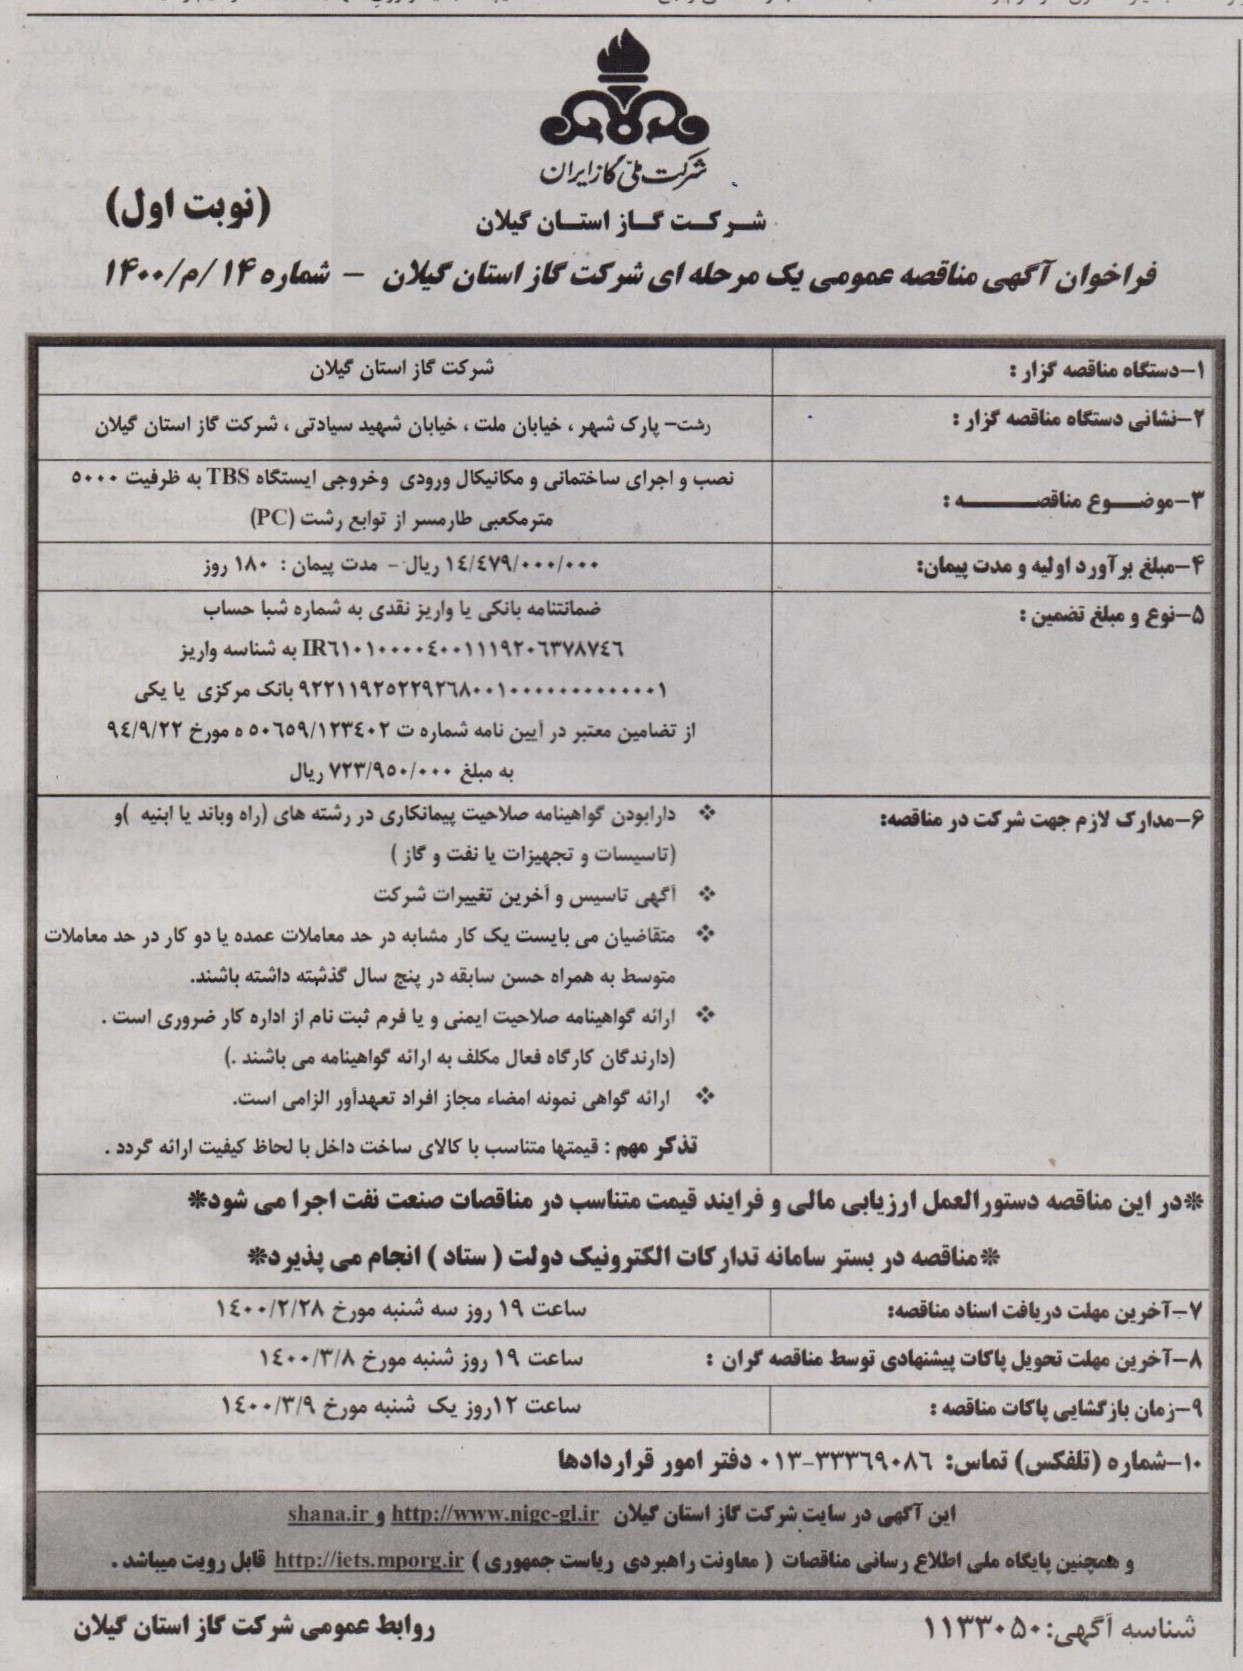 شرکت ملی گاز ایران
شرکت گاز استان گیلان
(نوبت اول)
فراخوان آگهی مناقصه عمومی یک مرحله ای شرکت گاز استان گیلان - شماره ۱۴ /م/۱۴۰۰
۱-دستگاه مناقصه گزار : شرکت گاز استان گیلان
۲-نشانی دستگاه مناقصه گزار : رشت- پارک شهر ، خیابان ملت ، خیابان شهید سیادتی ، شرکت گاز استان گیلان
۳-موضوع مناقصه : نصب و اجرای ساختمانی و مکانیکال ورودی وخروجی ایستگاه TBS به ظرفیت ۵۰۰۰
مترمکعبی طارمسر از توابع رشت (PC)
۴-مبلغ برآورد اولیه و مدت پیمان: ۱٤/٤۷۹/۰۰۰/۰۰۰ ریال - مدت پیمان : ۱۸۰ روز
۵-نوع و مبلغ تضمین : ضمانتنامه بانکی یا واریز نقدی به شماره شبا حساب
IR٦۱۰۱۰۰۰۰٤۰۰۱۱۱۹۲۰٦۳۷۸۷٤٦ به شناسه واریز
۹۲۲۱۱۹۲۵۲۲۹۲٦۸۰۰۱۰۰۰۰۰۰۰۰۰۰۰۰۰۱ بانک مرکزی یا یکی
از تضامین معتبر در آیین نامه شماره ت ۵۰٦۵۹/۱۲۳٤۰۲ ه مورخ ۹٤/۹/۲۲
به مبلغ ۷۲۳/۹۵۰/۰۰۰ ریال
۶-مدارک لازم جهت شرکت در مناقصه: ❖ دارابودن گواهینامه صلاحیت پیمانکاری در رشته های (راه وباند یا ابنیه )و
(تاسیسات و تجهیزات یا نفت و گاز )
❖ آگهی تاسیس و آخرین تغییرات شرکت
❖ متقاضیان می بایست یک کار مشابه در حد معاملات عمده یا دو کار در حد معاملات
متوسط به همراه حسن سابقه در پنج سال گذشته داشته باشند.
❖ ارائه گواهینامه صلاحیت ایمنی و یا فرم ثبت نام از اداره کار ضروری است .
(دارندگان کارگاه فعال مکلف به ارائه گواهینامه می باشند .)
❖ ارائه گواهی نمونه امضاء مجاز افراد تعهدآور الزامی است.
تذکر مهم : قیمتها متناسب با کالای ساخت داخل با لحاظ کیفیت ارائه گردد .
*در این مناقصه دستورالعمل ارزیابی مالی و فرایند قیمت متناسب در مناقصات صنعت نفت اجرا می شود*
*مناقصه در بستر سامانه تدارکات الکترونیک دولت ( ستاد ) انجام می پذیرد*
۷-آخرین مهلت دریافت اسناد مناقصه: ساعت ۱۹ روز سه شنبه مورخ ۱٤۰۰/۲/۲۸
۸-آخرین مهلت تحویل پاکات پیشنهادی توسط مناقصه گران : ساعت ۱۹ روز شنبه مورخ ۱٤۰۰/۳/۸
۹-زمان بازگشایی پاکات مناقصه : ساعت ۱۲روز یک شنبه مورخ ۱٤۰۰/۳/۹
۱۰-شماره (تلفکس) تماس: ۰۱۳-۳۳۳٦۹۰۸٦ دفتر امور قراردادها
این آگهی در سایت شرکت گاز استان گیلان http://www.nigc-gl.ir و shana.ir
و همچنین پایگاه ملی اطلاع رسانی مناقصات ( معاونت راهبردی ریاست جمهوری ) http://iets.mporg.ir قابل رویت میباشد .
شناسه آگهی: ۱۱۳۳۰۵۰
روابط عمومی شرکت گاز استان گیلان